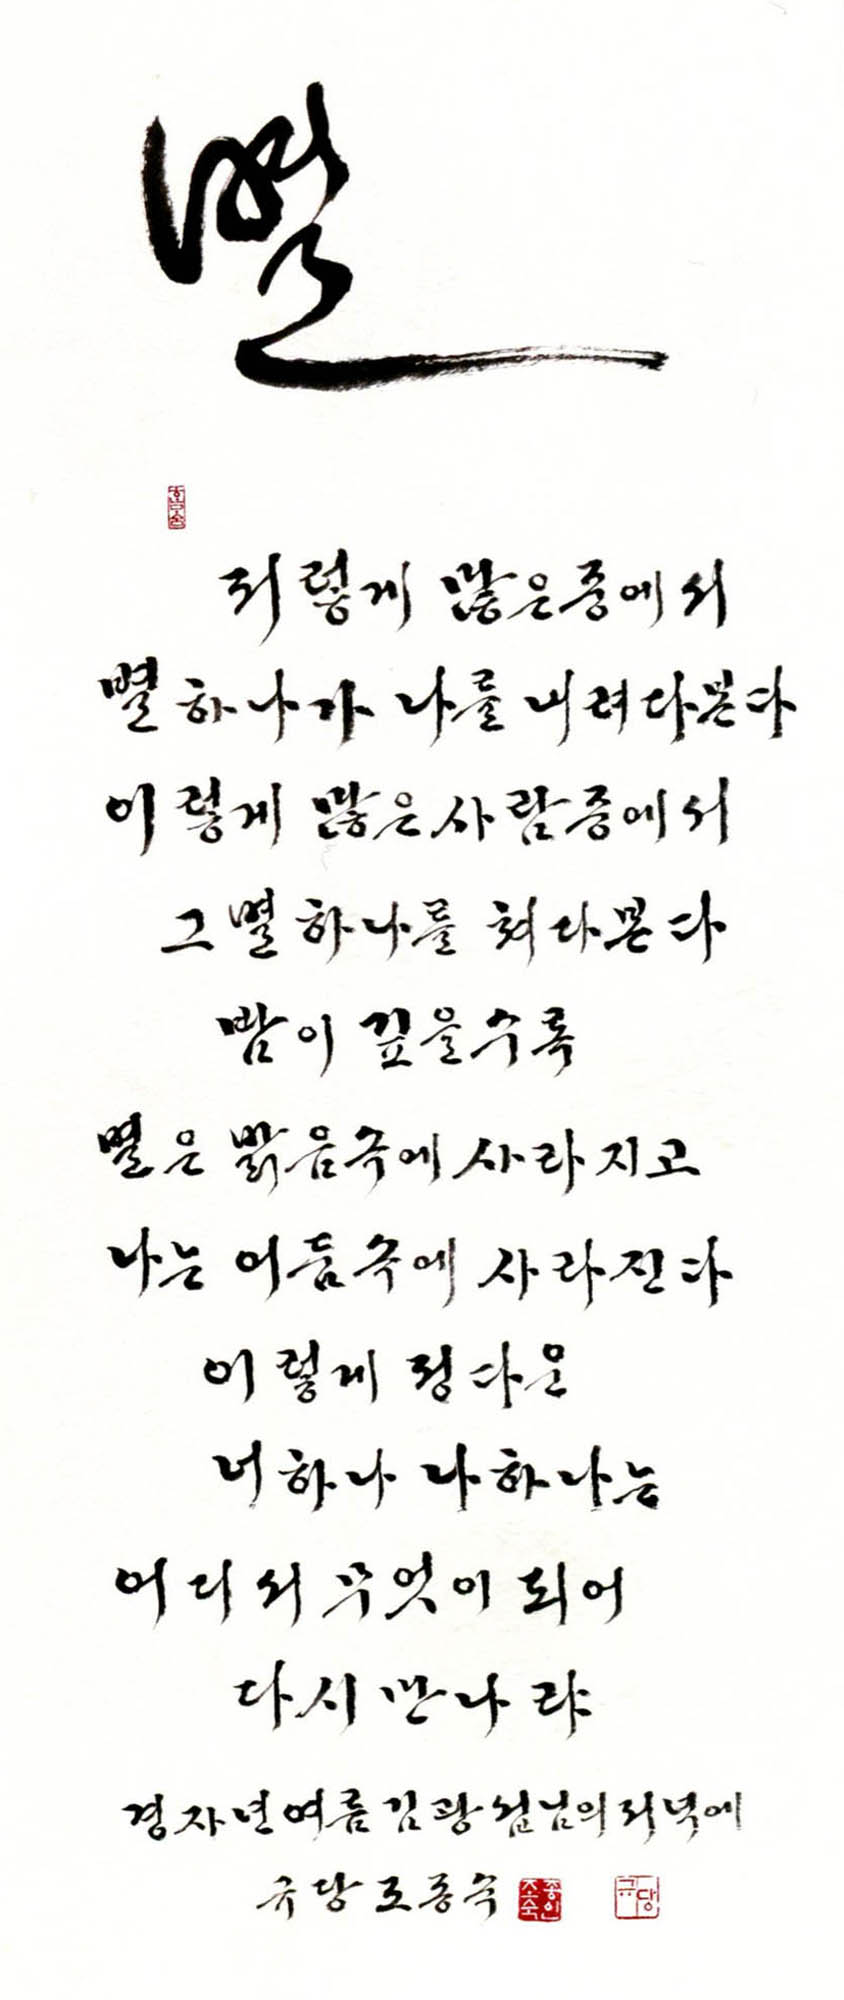 별
저렇게 많은중에서
별하나가 나를 내려다본다
이렇게 많은사람중에서
그별하나를 쳐다본다
밤이 깊을수록
별은 밝음속에 사라지고
나는 어둠속에 사라진다
이렇게 정다운
너하나 나하나는
어디서 무엇이 되어
다시 만나랴
경자년여름김광섭님의저녁에
규당조종숙 조종숙인 규당